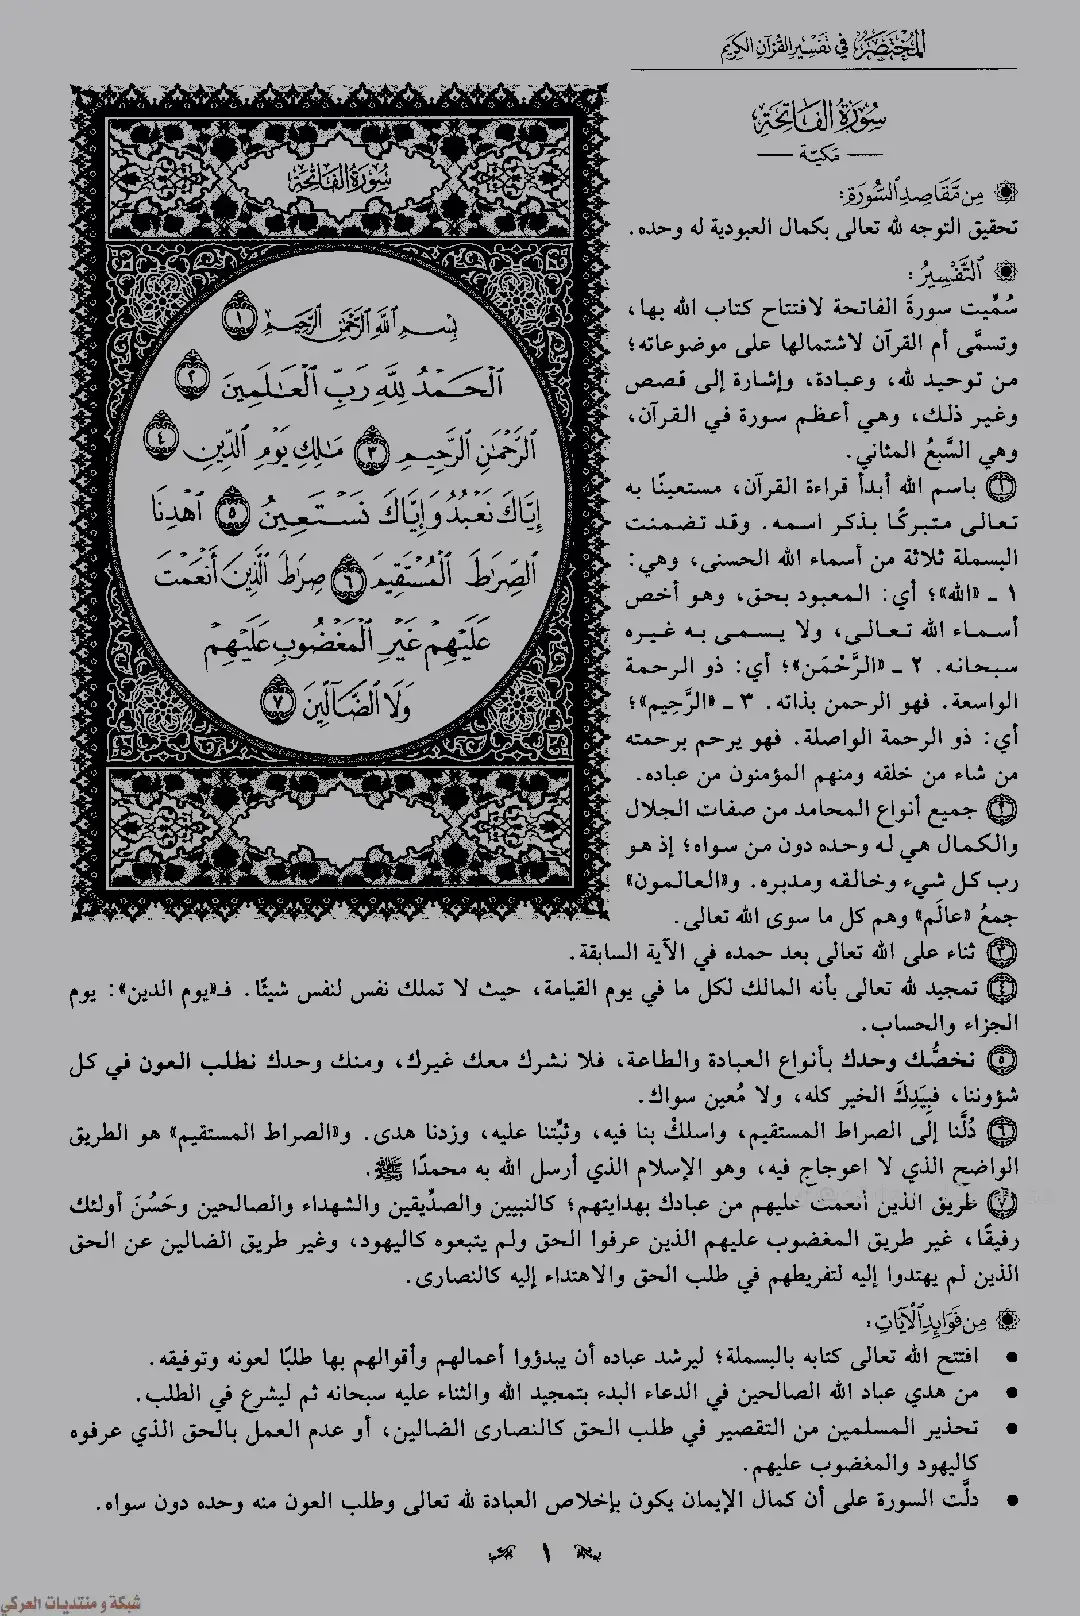 المختصر في تفسير القرآن الكريم
سُورَةُ الفَاتِحَةِ
مَكيّة
مِن مَّقَاصِدِ ٱلسُّورَةِ:
تحقيق التوجه لله تعالى بكمال العبودية له وحده.
ٱلتَّفْسِيرُ:
سُمِّيت سورةَ الفاتحة لافتتاح كتاب الله بها،
وتسمَّى أم القرآن لاشتمالها على موضوعاته؛
من توحيد لله، وعبادة، وإشارة إلى قصص
وغير ذلك، وهي أعظم سورة في القرآن،
وهي السَّبعُ المثاني.
١ باسم الله أبدأ قراءة القرآن، مستعينًا به
تعالى متبركًا بذكر اسمه. وقد تضمنت
البسملة ثلاثة من أسماء الله الحسنى، وهي:
١ ـ «الله»؛ أي: المعبود بحق، وهو أخص
أسماء الله تعالى، ولا يسمى به غيره
سبحانه. ٢ ـ «الرَّحْمَن»؛ أي: ذو الرحمة
الواسعة. فهو الرحمن بذاته. ٣ ـ «الرَّحِيم»؛
أي: ذو الرحمة الواصلة. فهو يرحم برحمته
من شاء من خلقه ومنهم المؤمنون من عباده.
٢ جميع أنواع المحامد من صفات الجلال
والكمال هي له وحده دون من سواه؛ إذ هو
رب كل شيء وخالقه ومدبره. و«العالمون»
جمعُ «عالَم» وهم كل ما سوى الله تعالى.
سُورَةُ الفَاتِحَةِ
بِسْمِ ٱللَّهِ ٱلرَّحْمَٰنِ ٱلرَّحِيمِ ١
ٱلْحَمْدُ لِلَّهِ رَبِّ ٱلْعَٰلَمِينَ ٢
ٱلرَّحْمَٰنِ ٱلرَّحِيمِ ٣ مَٰلِكِ يَوْمِ ٱلدِّينِ ٤
إِيَّاكَ نَعْبُدُ وَإِيَّاكَ نَسْتَعِينُ ٥ ٱهْدِنَا
ٱلصِّرَٰطَ ٱلْمُسْتَقِيمَ ٦ صِرَٰطَ ٱلَّذِينَ أَنْعَمْتَ
عَلَيْهِمْ غَيْرِ ٱلْمَغْضُوبِ عَلَيْهِمْ
وَلَا ٱلضَّآلِّينَ ٧
٣ ثناء على الله تعالى بعد حمده في الآية السابقة.
٤ تمجيد لله تعالى بأنه المالك لكل ما في يوم القيامة، حيث لا تملك نفس لنفس شيئًا. فـ«يوم الدين»: يوم
الجزاء والحساب.
٥ نخصُّك وحدك بأنواع العبادة والطاعة، فلا نشرك معك غيرك، ومنك وحدك نطلب العون في كل
شؤوننا، فبِيَدِكَ الخير كله، ولا مُعين سواك.
٦ دُلَّنا إلى الصراط المستقيم، واسلكْ بنا فيه، وثبِّتنا عليه، وزدنا هدى. و«الصراط المستقيم» هو الطريق
الواضح الذي لا اعوجاج فيه، وهو الإسلام الذي أرسل الله به محمدًا ﷺ.
٧ طريق الذين أنعمت عليهم من عبادك بهدايتهم؛ كالنبيين والصدِّيقين والشهداء والصالحين وحَسُنَ أولئك
رفيقًا، غير طريق المغضوب عليهم الذين عرفوا الحق ولم يتبعوه كاليهود، وغير طريق الضالين عن الحق
الذين لم يهتدوا إليه لتفريطهم في طلب الحق والاهتداء إليه كالنصارى.
مِن فَوَائِدِ ٱلْآيَاتِ:
• افتتح الله تعالى كتابه بالبسملة؛ ليرشد عباده أن يبدؤوا أعمالهم وأقوالهم بها طلبًا لعونه وتوفيقه.
• من هدي عباد الله الصالحين في الدعاء البدء بتمجيد الله والثناء عليه سبحانه ثم ليشرع في الطلب.
• تحذير المسلمين من التقصير في طلب الحق كالنصارى الضالين، أو عدم العمل بالحق الذي عرفوه
كاليهود والمغضوب عليهم.
• دلَّت السورة على أن كمال الإيمان يكون بإخلاص العبادة لله تعالى وطلب العون منه وحده دون سواه.
١
شبكة و منتديات العركي